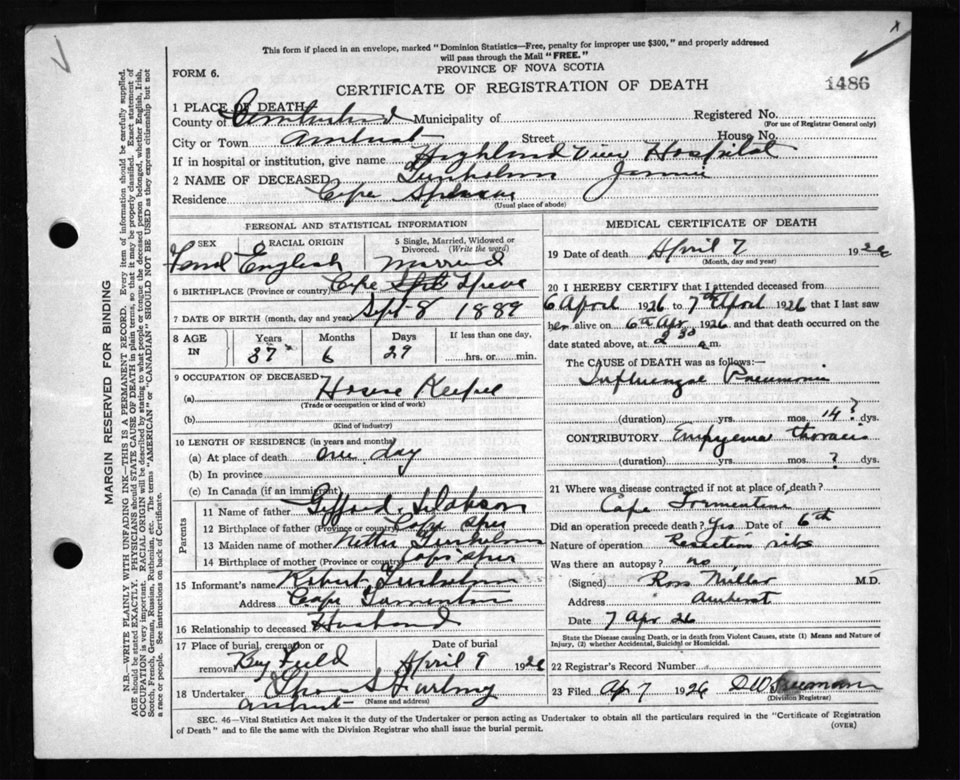 This form if placed in an envelope, marked "Dominion Statistics—Free, penalty for improper use $300," and properly addressed
will pass through the Mail "FREE."
PROVINCE OF NOVA SCOTIA
FORM 6.
CERTIFICATE OF REGISTRATION OF DEATH
1486
1 PLACE OF DEATH
County of Cumberland Municipality of
Registered No.
(For use of Registrar General only)
City or Town Amherst Street House No.
If in hospital or institution, give name Highland View Hospital
2 NAME OF DECEASED Jennie
Residence Cape
(Usual place of abode)
PERSONAL AND STATISTICAL INFORMATION
SEX RACIAL ORIGIN 5 Single, Married, Widowed or Divorced. (Write the word)
Femal English Married
6 BIRTHPLACE (Province or country) Cape
7 DATE OF BIRTH (month, day and year) Sept 8 1889
8 AGE IN Years Months Days If less than one day,
37 6 29 hrs. or min.
9 OCCUPATION OF DECEASED
(a) House Keeper
(Trade or occupation or kind of work)
(b)
(Kind of industry)
10 LENGTH OF RESIDENCE (in years and months)
(a) At place of death one day
(b) In province
(c) In Canada (if an immigrant)
Parents
11 Name of father
12 Birthplace of father (Province or country) Cape
13 Maiden name of mother Nettie
14 Birthplace of mother (Province or country)
15 Informant's name Robert
Address Cape
16 Relationship to deceased Husband
17 Place of burial, cremation or removal Bay Field
Date of burial April 9 1926
18 Undertaker
Amherst (Name and address)
MEDICAL CERTIFICATE OF DEATH
19 Date of death April 7 1926
(Month, day and year)
20 I HEREBY CERTIFY that I attended deceased from
6 April 1926 to 7th April 1926 that I last saw
her alive on 6th Apr 1926 and that death occurred on
date stated above, at 2 30 a m.
The CAUSE of DEATH was as follows:—
Influenzal Pneumonia
(duration) yrs. mos. 14? dys.
CONTRIBUTORY Empyema thoracis
(duration) yrs. mos. ? dys.
21 Where was disease contracted if not at place of death?
Cape Tormentine
Did an operation precede death? Yes Date of 6th
Nature of operation Resection ribs
Was there an autopsy? no
(Signed) Ross Millar M.D.
Address Amherst
Date 7 Apr 26
State the Disease causing Death, or in death from Violent Causes, state (1) Means and Nature of
Injury, (2) whether Accidental, Suicidal or Homicidal.
22 Registrar's Record Number
23 Filed Apr 7 1926
(Division Registrar)
SEC. 46—Vital Statistics Act makes it the duty of the Undertaker or person acting as Undertaker to obtain all the particulars required in the "Certificate of Registration
of Death" and to file the same with the Division Registrar who shall issue the burial permit.
(OVER)
MARGIN RESERVED FOR BINDING
N.B.—WRITE PLAINLY WITH UNFADING INK—THIS IS A PERMANENT RECORD. Every item of information should be carefully supplied.
AGE should be stated EXACTLY. PHYSICIANS should STATE CAUSE OF DEATH in plain terms, so that it may be properly classified. Exact statement of
OCCUPATION is very important. RACIAL ORIGIN will be described by stating to what people or tongue the deceased person belonged, whether English, Irish,
Scotch, French, German, Russian, Ruthenian, etc. The terms "AMERICAN" or "CANADIAN" SHOULD NOT BE USED as they express citizenship but not
a race or people. See instructions on back of Certificate.